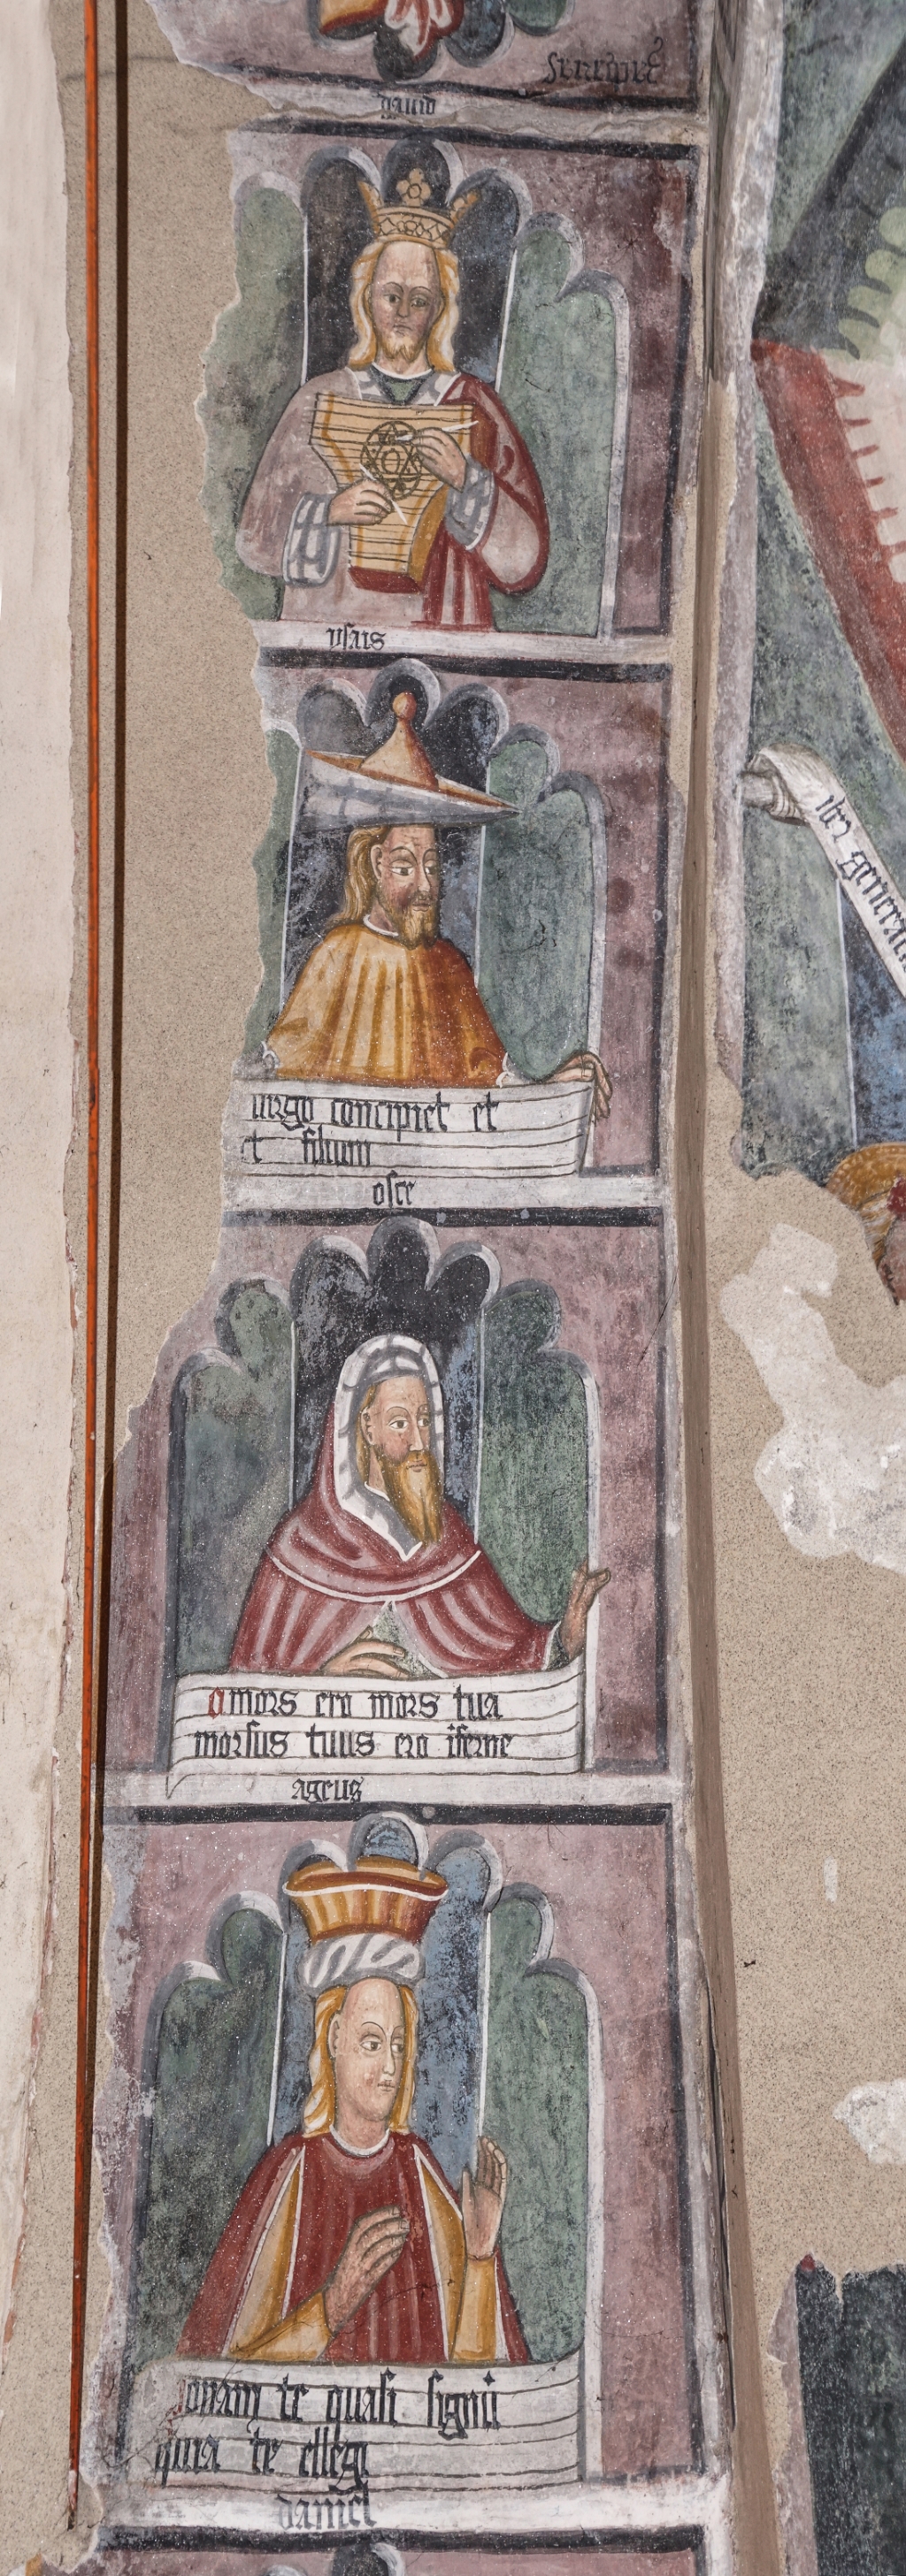 david
ysais
virgo concipiet et
et filium
osee
o mors ero mors tua
morsus tuus ero iferne
ageus
ponam te quasi signū
quia te ellegi
daniel